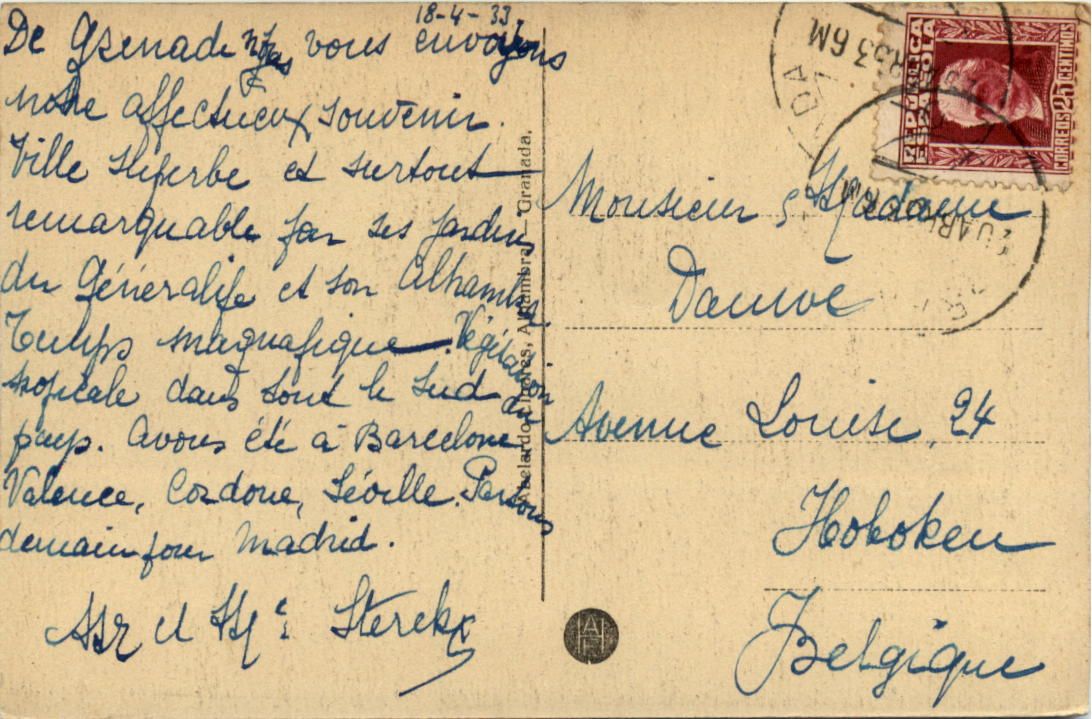 18-4-33
De Grenade nous vous envoyons
notre affectueux souvenir.
Ville superbe et surtout
remarquable par ses jardins
du Généralife et son Alhambra.
Temps magnafique. Végétation
tropicale dans tout le Sud du
pays. Avons été à Barcelone
Valence, Cordoue, Séville. Partons
demain pour Madrid.
Mr et Me Sterckx
Abelardo Linares, Alhambra - Granada.
REPÚBLICA
ESPAÑOLA
CORREOS 25 CENTIMOS
33 6M
Monsieur & Madame
Dauwe
Avenue Louise, 24
Hoboken
Belgique